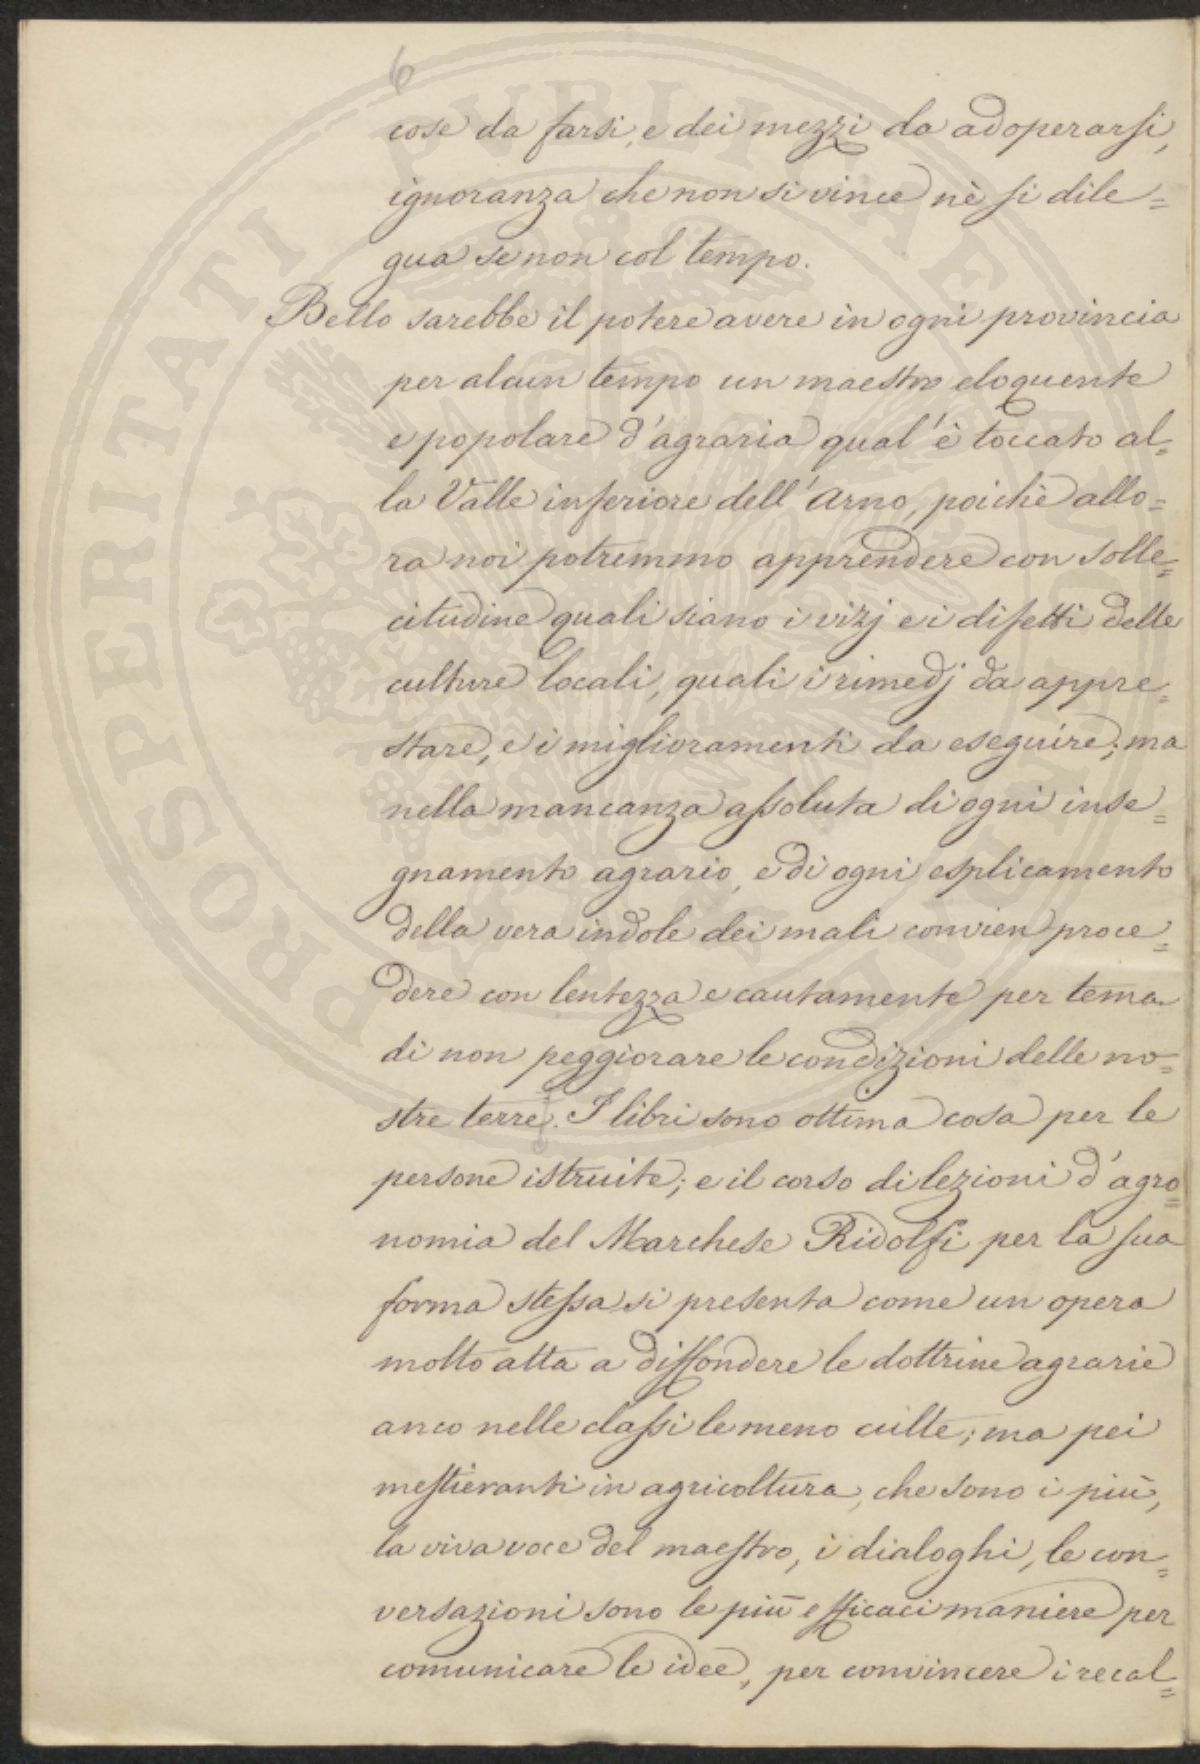 6
cose da farsi, e dei mezzi da adoperarsi,
ignoranza che non si vince nè si dile=
gua se non col tempo.
Bello sarebbe il potere avere in ogni provincia
per alcun tempo un maestro eloquente
e popolare d'agraria qual'è toccato al=
la Valle inferiore dell'Arno, poichè allo=
ra noi potremmo apprendere con solle=
citudine quali siano i vizj e i difetti delle
culture locali, quali i rimedj da appre=
stare, e i miglioramenti da eseguire; ma
nella mancanza assoluta di ogni inse=
gnamento agrario, e di ogni esplicamento
della vera indole dei mali convien proce=
dere con lentezza e cautamente per tema
di non peggiorare le condizioni delle no=
stre terre. I libri sono ottima cosa per le
persone istruite; e il corso di lezioni d'agro=
nomia del Marchese Ridolfi per la sua
forma stessa si presenta come un opera
molto atta a diffondere le dottrine agrarie
anco nelle classi le meno culte; ma pei
mestieranti in agricoltura, che sono i più,
la viva voce del maestro, i dialoghi, le con=
versazioni sono le più efficaci maniere per
comunicare le idee, per convincere i recal=
PROSPERITATI PUBLICAE AUGENDAE